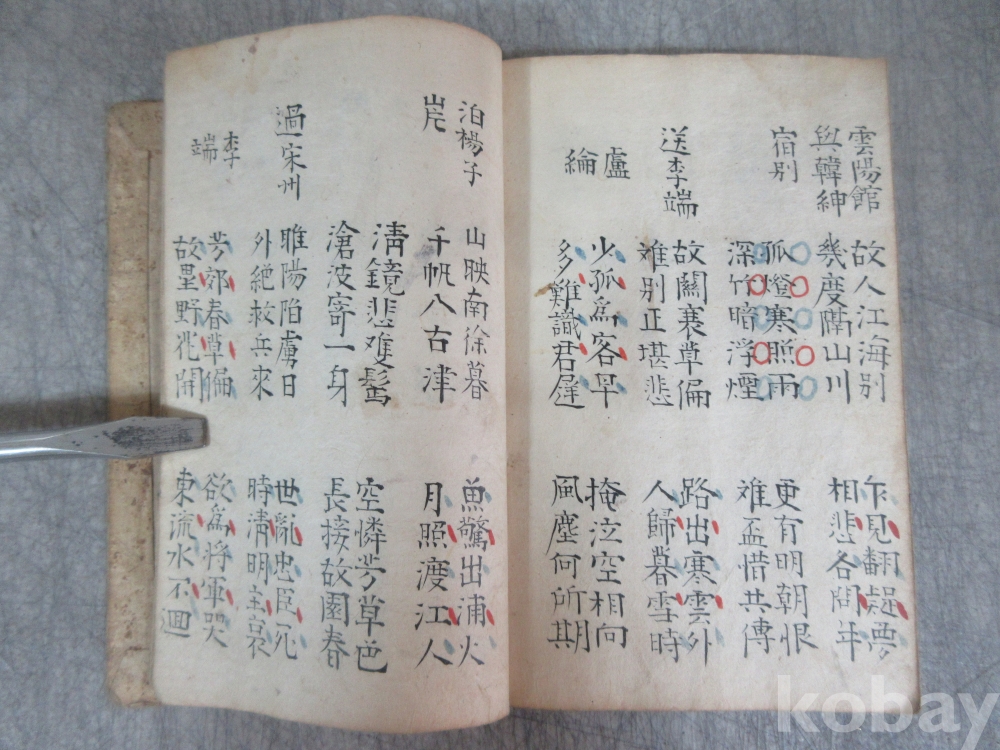 雲陽館
與韓紳
宿別
故人江海別
幾度隔山川
乍見翻疑夢
相悲各問年
孤燈寒照雨
深竹暗浮煙
更有明朝恨
难盃惜共傳
送李端
盧
綸
故關衰草偏
难別正堪悲
路出寒雲外
人歸暮雪時
少孤爲客早
多難識君遲
掩泣空相向
風塵何所期
泊楊子
岸
山映南徐暮
千帆入古津
魚驚出浦火
月照渡江人
清鏡悲雙鬢
滄波寄一身
空憐芳草色
長接故園春
過宋州
李
端
睢陽陷虜日
外絕救兵來
世亂忠臣死
時清明主哀
芳郊春草偏
故壘野花開
欲爲將軍哭
東流水不迴
kobay